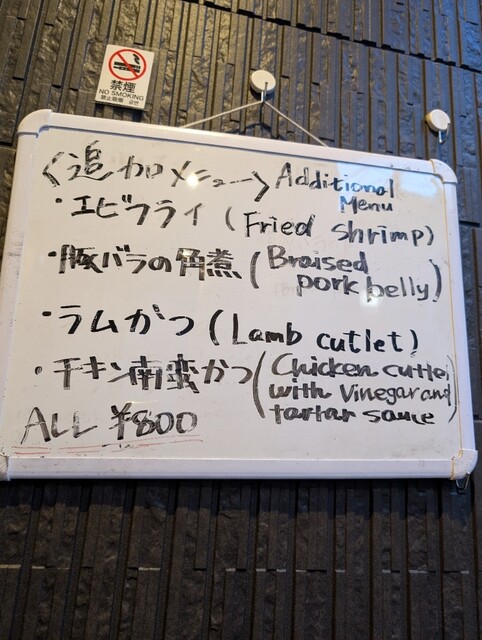 禁煙
NO SMOKING
<追加メニュー> Additional Menu
・エビフライ (Fried shrimp)
・豚バラの角煮 (Braised pork belly)
・ラムかつ (Lamb cutlet)
・チキン南蛮かつ (Chicken cutlet with Vinegar and tartar sauce)
ALL ¥800